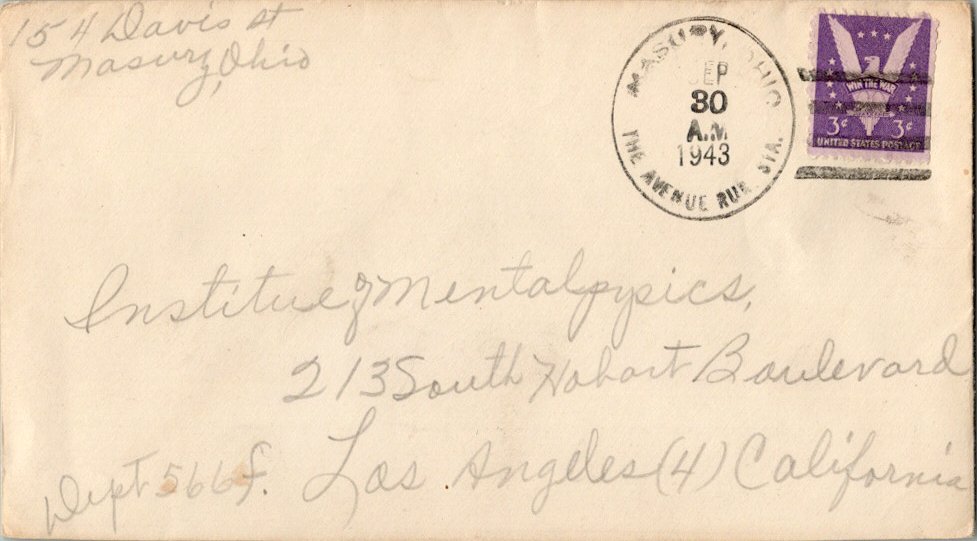 154 Davis st
Masury, Ohio
MASURY, OHIO
SEP
30
A.M
1943
THE AVENUE RUR. STA.
WIN THE WAR
3¢ 3¢
UNITED STATES POSTAGE
Institue of Mentalpysics,
213 South Hobart Boulevard
Dept 566f. Los Angeles (4) California